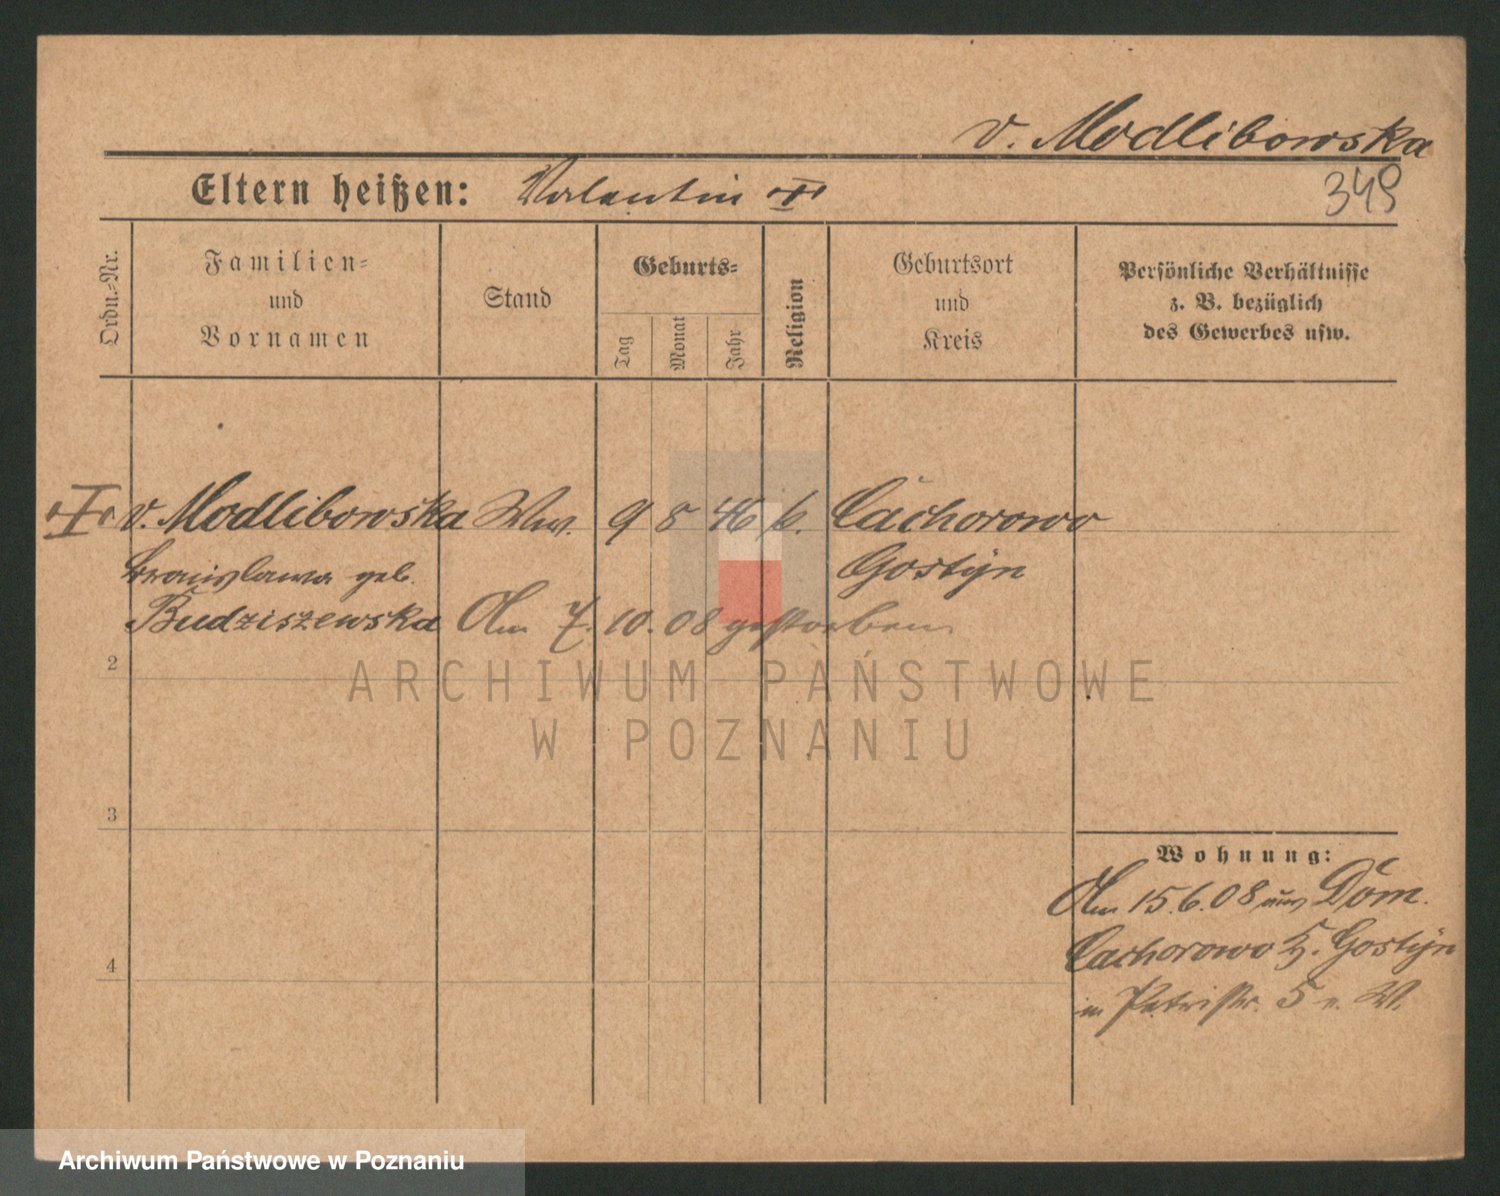 v. Modlibowska
Eltern heißen: Valentin
349
Ordn.-Nr.
Familien-
und
Vornamen
Stand
Geburts-
Tag
Monat
Jahr
Religion
Geburtsort
und
Kreis
Persönliche Verhältnisse
z. B. bezüglich
des Gewerbes usw.
v. Modlibowska Ww. 9 8 46 k. Cachorowo
Bronislawa geb. Gostyn
Budziszewska Am 7. 10. 08 gestorben
2
3
4
Wohnung:
Am 15.6.08 aus Dom.
Cachorowo K. Gostyn
in Petristr. 5 v. W.
ARCHIWUM PAŃSTWOWE
W POZNANIU
Archiwum Państwowe w Poznaniu